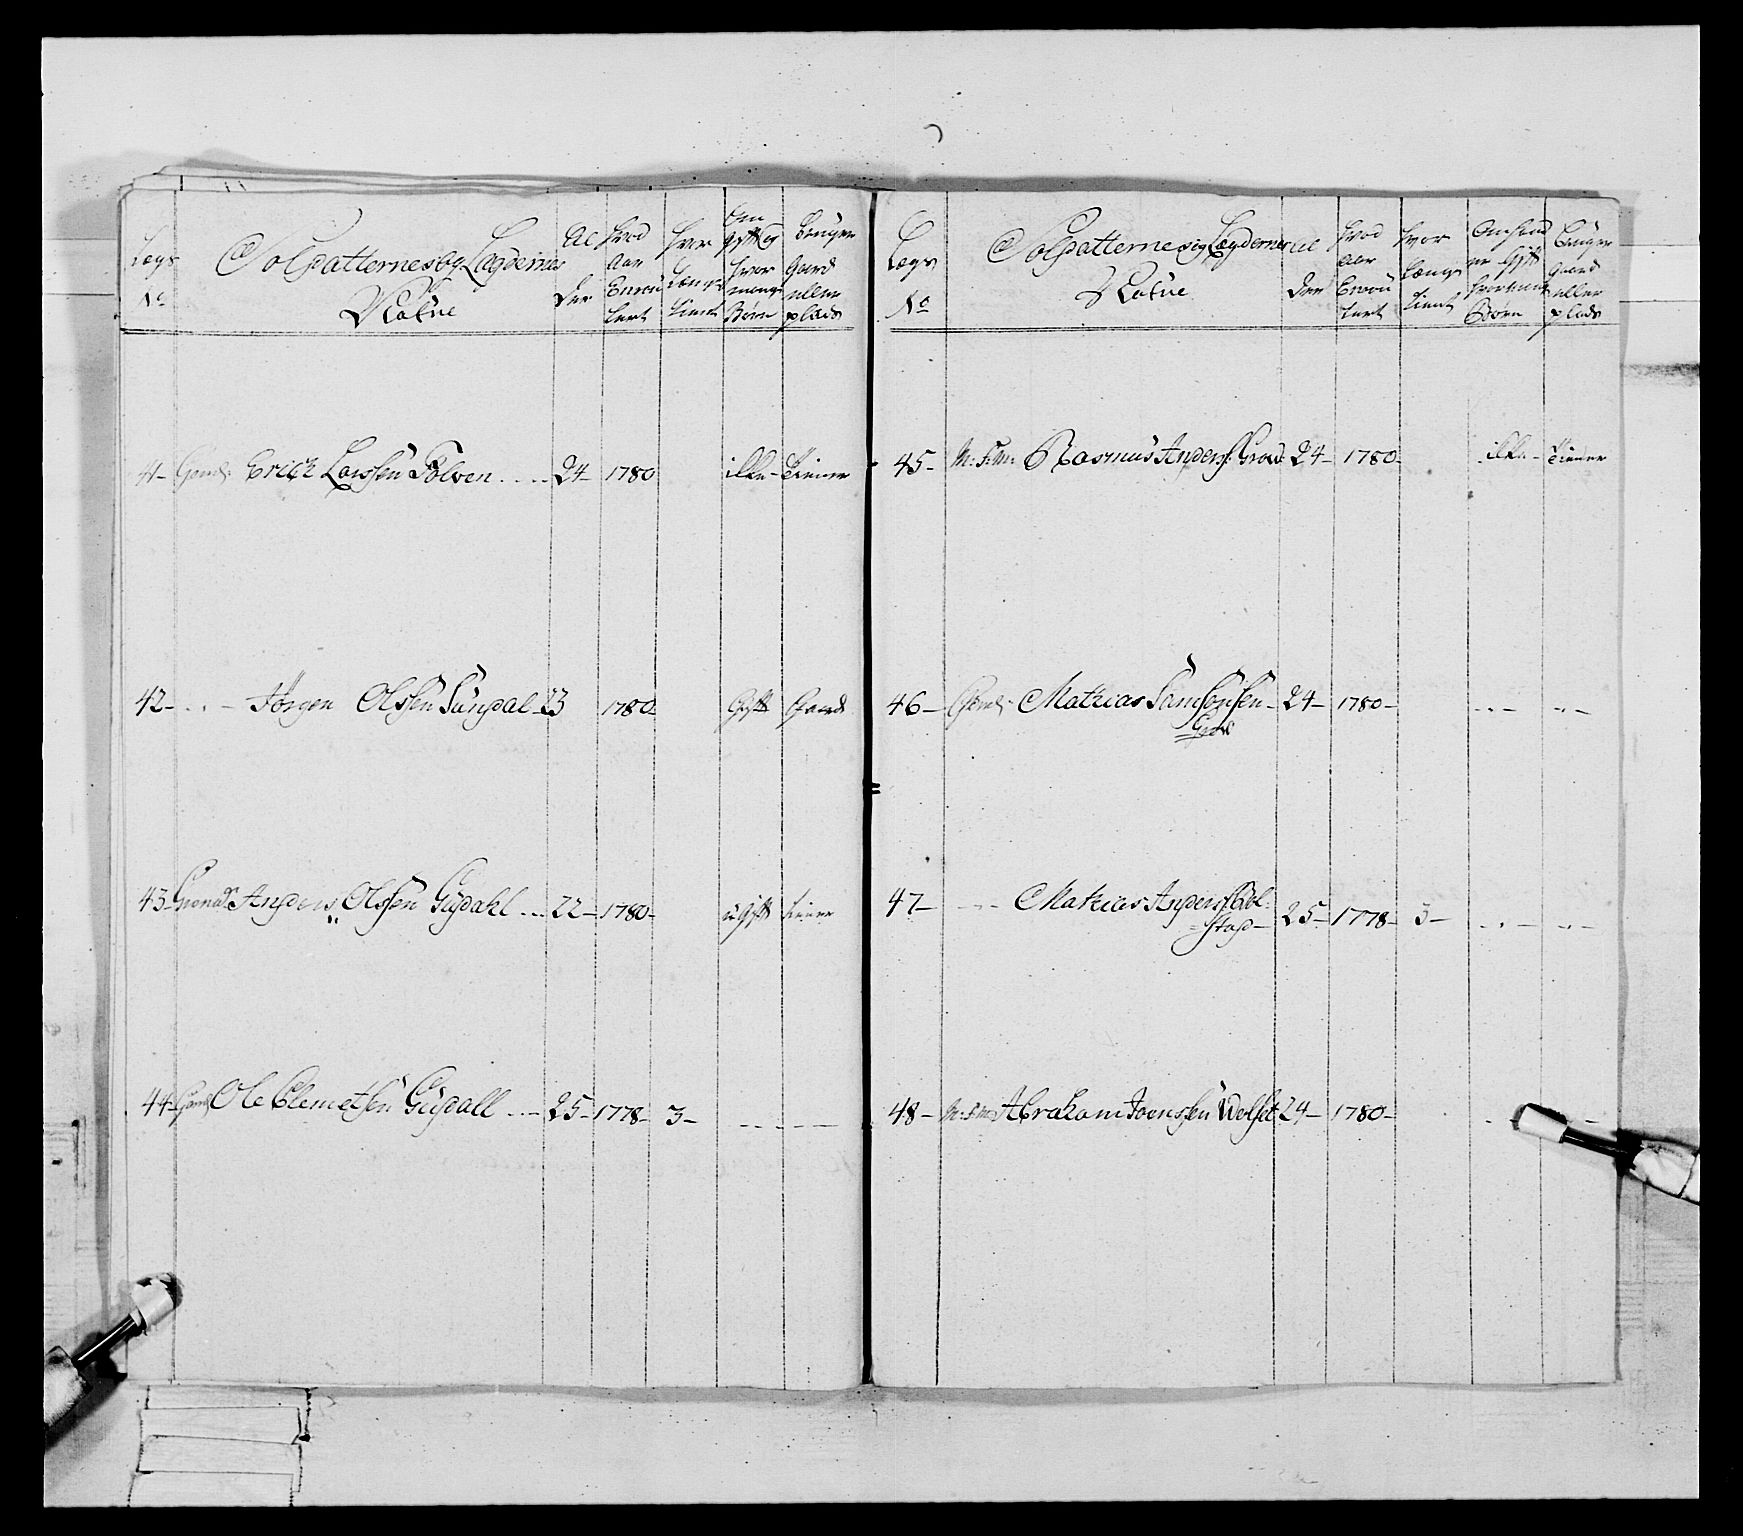 Legs No
Soldatternes og Lægdernes Nafne
Al der
Hvad Aar Enroulert
Hvor Længe tient
Om Gift og hvor mange Børn
Bruger Gaard eller plads
41 - Gemf: Erich Larssen Folven .... 24 - 1780 ikke - Tiener
42 - . . - Jörgen Olssen Sundal - 23 1780 - Gift Gaard
43 - Grenad: Anders Olssen Gusdahl ... 22 - 1780 - ugift tiener
44 - Gemf: Ole Clemetsen Gusdall ... 25 - 1778 - 3 - - - - - -
Legs No
Soldatternes og Lægdernes Nafne
Al der
Hvad Aar Enroulert
Hvor Længe tient
Om hand er Gift hvor mange Børn
Bruger Gaard eller plads
45 - N: F: M: Rasmus Anders: Groed 24 - 1780 - ikke - Tiener
46 - Gemf: Mathias Samsonsen - 24 - 1780 - - . . - - . . -
Groed
47 - - . . - Mathias Anders:
stad - 25 - 1778 - 3 - - . . - - . . -
48 - N: F: M: Abraham Joenssen Wolset 24 - 1780 -